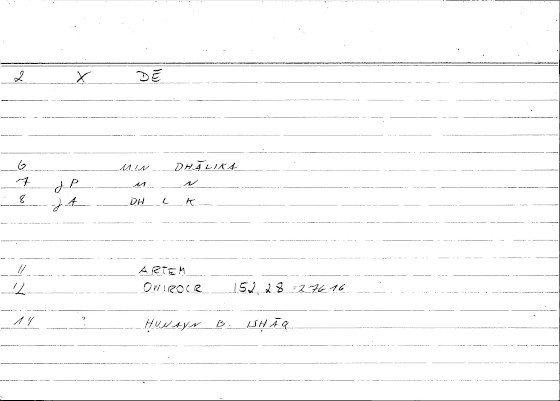 2 X DĒ
6 MIN DHĀLIKA
7 JP M N
8 JA DH L K
11 ARTEM
12 ONIROCR 152,28 = 276 16
14 " ḤUNAYN B. ISḤĀQ